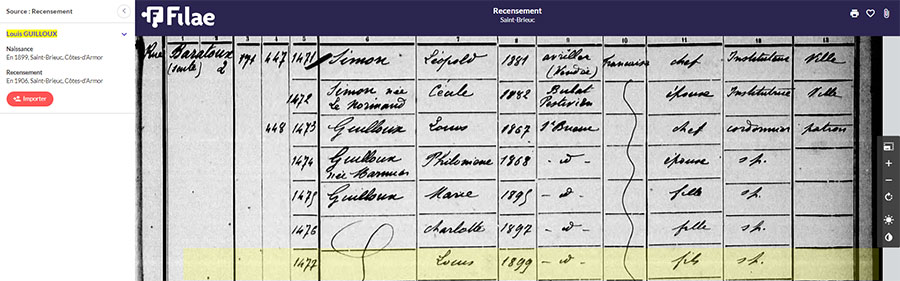 Source : Recensement
Louis GUILLOUX
Naissance
En 1899, Saint-Brieuc, Côtes-d'Armor
Recensement
En 1906, Saint-Brieuc, Côtes-d'Armor
Importer
Filae
Recensement
Saint-Brieuc
1 2 3 4 5 6 7 8 9 10 11 12 13
Rue Baratoux 447 1471 Simon Léopold 1881 (Vendée) française chef Instituteur Ville
1472 Simon née Le Normand Cécile 1882 Bulat Pestivien épouse Institutrice Ville
448 1473 Guilloux Louis 1867 St Brieuc chef cordonnier patron
1474 Guilloux née Philomène 1868 - d - épouse s.p.
1475 Guilloux Marie 1895 - d - fille s.p.
1476 Charlotte 1897 - d - fille s.p.
1477 Louis 1899 - d - fils s.p.